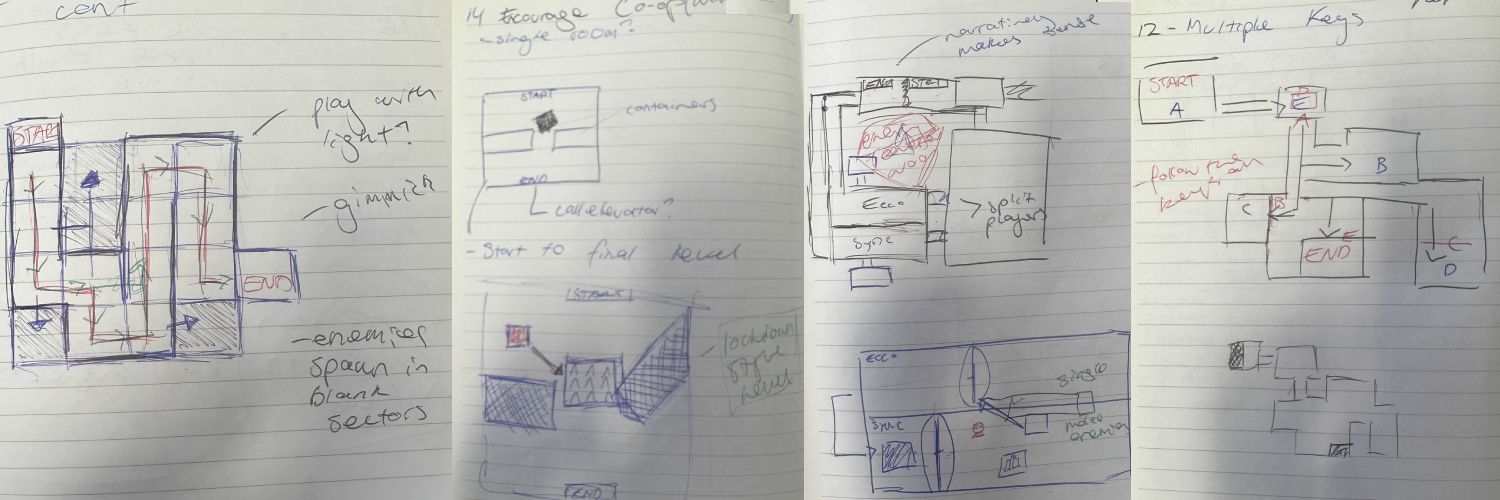 cont
START
play with
light?
- gimmick
END
- enemies
spawn in
blank
sectors
14 Encourage
- single room?
START
containers
END
call elevator?
- Start to final level
START
lockdown
style
level
END
narratively
makes sense
END START
Ecco
Sync
split
players
ECCO
single
Sync
more
enemies
12 - Multiple Keys
START
A
E
B
- follow
C
B
END
E
C
D